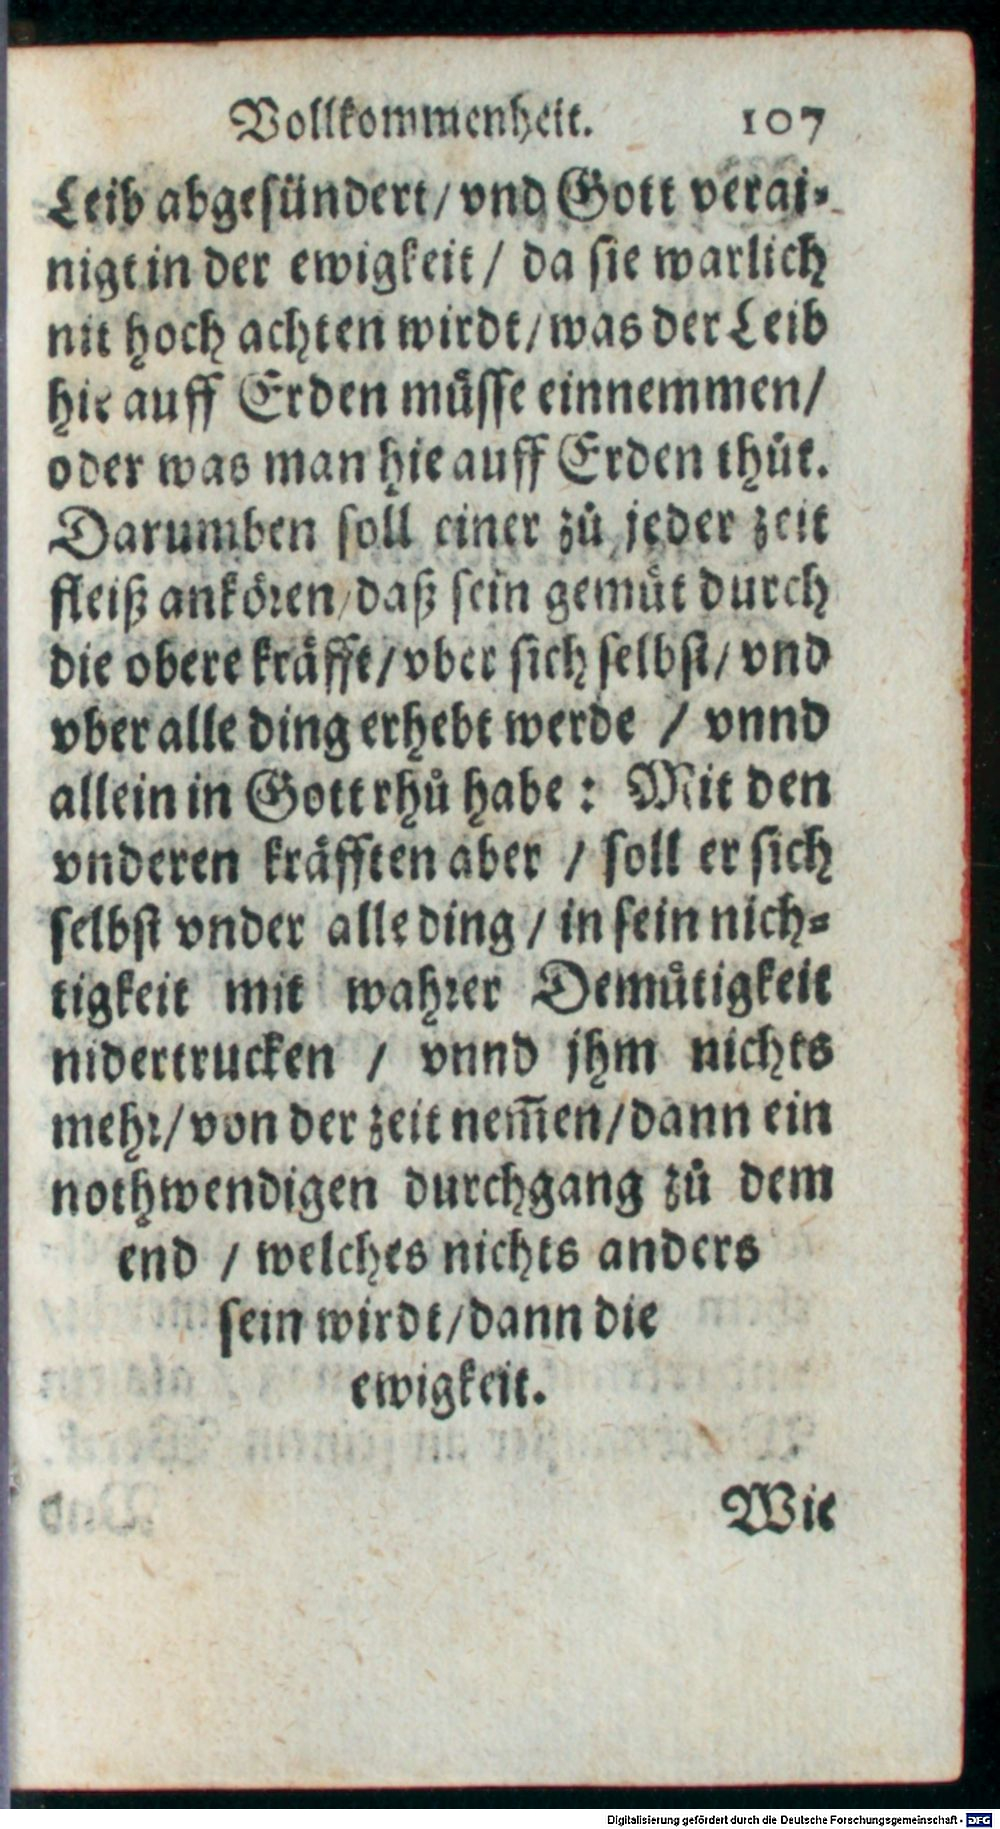 Vollkommenheit. 107
Leib abgesündert / vnd Gott verai-
nigt in der ewigkeit / da sie warlich
nit hoch achten wirdt / was der Leib
hie auff Erden müsse einnemmen /
oder was man hie auff Erden thůt.
Darumben soll einer zů jeder zeit
fleiß ankören / daß sein gemůt durch
die obere kräfft / vber sich selbst / vnd
vber alle ding erhebt werde / vnnd
allein in Gott rhů habe : Mit den
vnderen kräfften aber / soll er sich
selbst vnder alle ding / in sein nich-
tigkeit mit wahrer Demůtigkeit
nidertrucken / vnnd jhm nichts
mehr / von der zeit nem̃en / dann ein
nothwendigen durchgang zů dem
end / welches nichts anders
sein wirdt / dann die
ewigkeit.
Wie
Digitalisierung gefördert durch die Deutsche Forschungsgemeinschaft - DFG